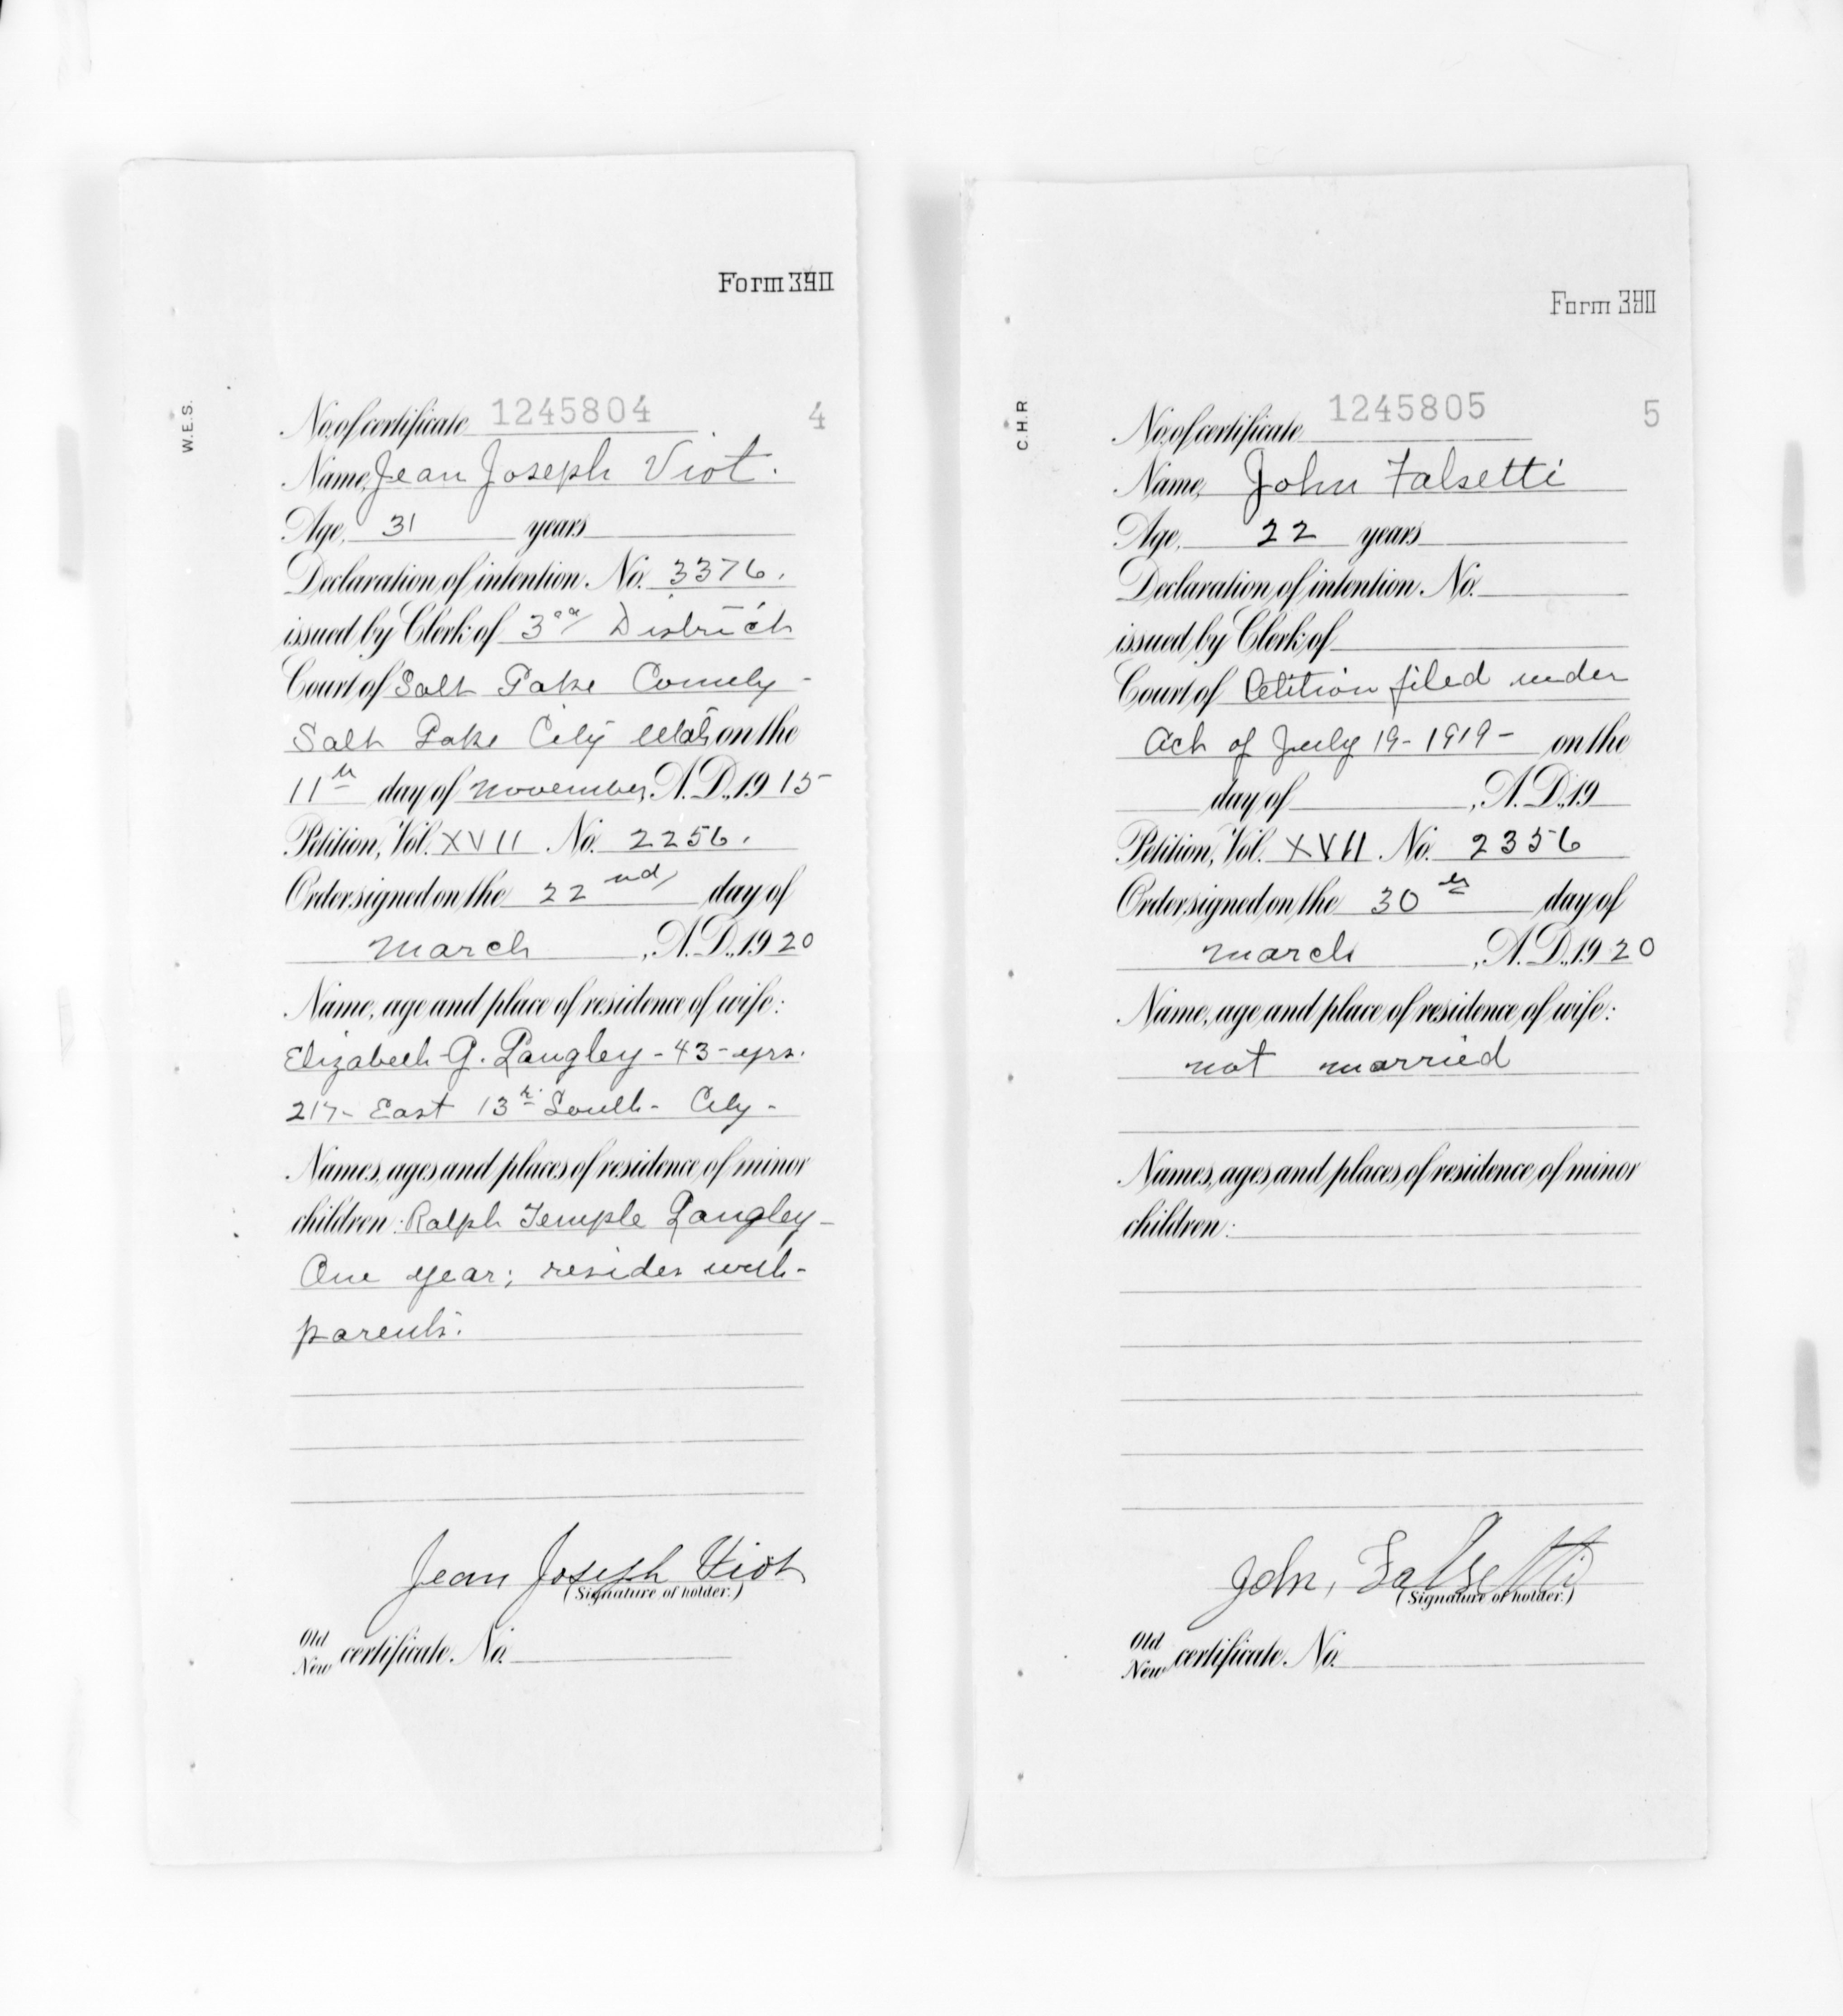 Form 390
W.E.S.
No. of certificate 1245804 4
Name, Jean Joseph Viot.
Age, 31 years
Declaration of intention. No. 3376.
issued by Clerk of 3rd District
Court of Salt Lake County -
Salt Lake City Utah on the
11th day of November, A.D., 1915
Petition, Vol. XVII No. 2256.
Order signed on the 22nd day of
March, A.D., 1920
Name, age and place of residence of wife:
Elizabeth G. Langley - 43 - yrs.
217- East 13th South - City -
Names, ages and places of residence of minor
children: Ralph Temple Langley -
One year; resides with -
parents.
Jean Joseph Viot
(Signature of holder.)
Old
New certificate. No.
Form 390
C.H.R
No. of certificate 1245805 5
Name, John Falsetti
Age, 22 years
Declaration of intention. No.
issued by Clerk of
Court of Petition filed under
Act of July 19 - 1919 - on the
day of , A.D., 19
Petition, Vol. XVII No. 2356
Order signed on the 30th day of
March, A.D., 1920
Name, age and place of residence of wife:
not married
Names, ages and places of residence of minor
children:
John, Falsetti
(Signature of holder.)
Old
New certificate. No.